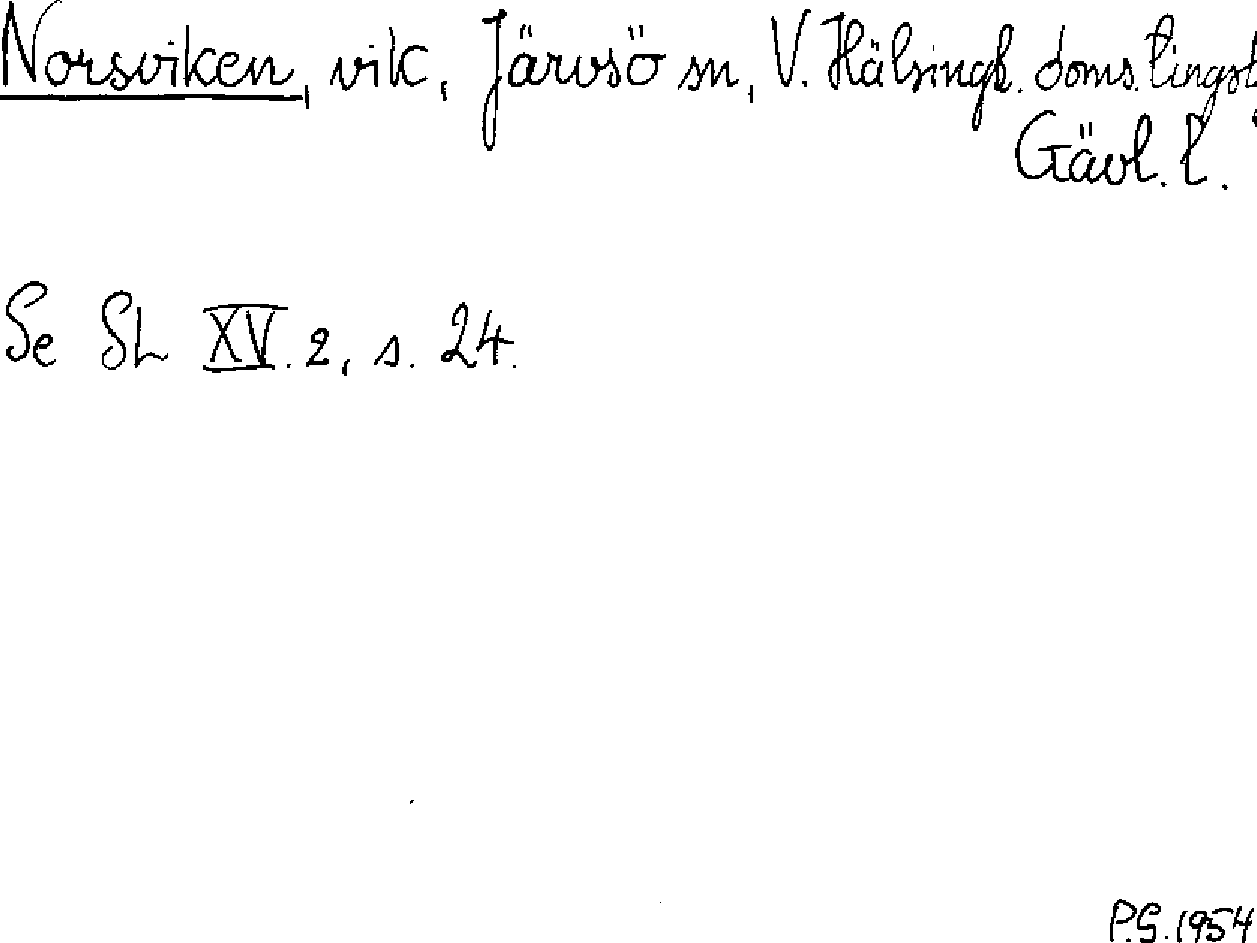 Norsviken, vik, Järvsö sn, V. Hälsingl. doms. tingsl.
Gävl. l.
Se SL XV. 2, s. 24.
P.G. 1954